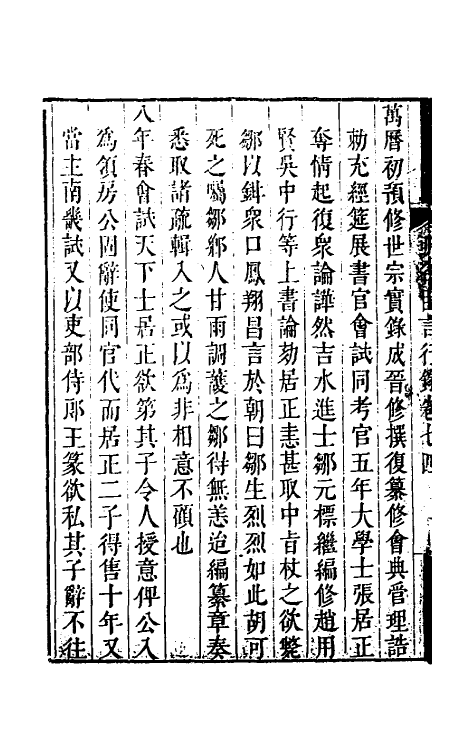 萬曆初預修世宗實錄成晉修撰復纂修會典管理誥
勑充經筵展書官會試同考官五年大學士張居正
奪情起復衆論譁然吉水進士鄒元標繼編修趙用
賢吳中行等上書論劾居正恚甚取中旨杖之欲斃
鄒以鉗衆口鳳翔昌言於朝曰鄒生烈烈如此胡可
死之囑鄒鄉人甘雨調護之鄒得無恙迨編纂章奏
悉取諸疏輯入之或以爲非相意不顧也
八年春會試天下士居正欲第其子令人授意俾公入
爲領房公固辭使同官代而居正二子得售十年又
當主南畿試又以吏部侍郎王篆欲私其子辭不往
言行錄卷七四